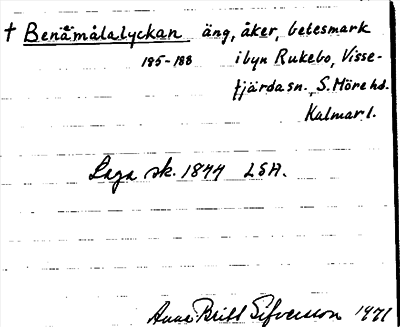 † Benåmålalyckan äng, åker, betesmark
185-188 i byn Rukebo, Visse-
fjärda sn. S. Möre hd.
Kalmar l.
Laga sk. 1844 LSA.
Anna Britt Sifversson 1971